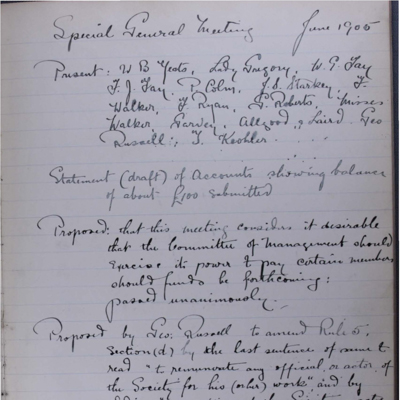 Special General Meeting June 1905
Present: W B Yeats, Lady Gregory, W G Fay
F. J. Fay, P Colm, J. S. Starkey F.
Walker, F Ryan, G. Roberts, Misses
Walker Garvey, Allgood, & Laird. Geo
Russell:, T. Keohler . . . .
Statement (draft) of Accounts showing balance
of about £100 submitted
Proposed: that this meeting considers it desirable
that the Committee of Management should
exercise its power to pay certain members
should funds be forthcoming:
passed unanimously.
Proposed by Geo. Russell to amend Rule 5.
Section (d) by the last sentence of same to
read "to remunerate any official or actor, of
the Society for his (or her) work" and by